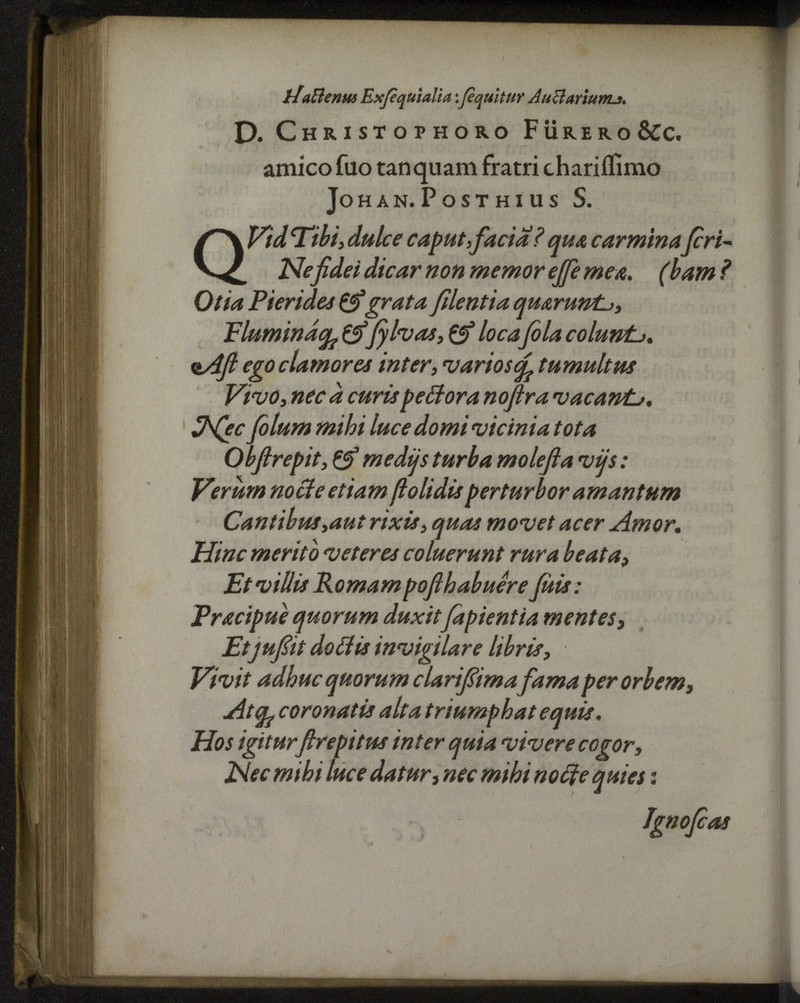 Hactenus Exſequialia: ſequitur Auctarium.
D. CHRISTOPHORO FÜRERO &c.
amico ſuo tanquam fratri chariſſimo
JOHAN. POSTHIUS S.
QVid Tibi, dulce caput, faciā? quæ carmina ſcri-
Ne fidei dicar non memor eſſe meæ. (bam?
Otia Pierides & grata ſilentia quærunt,
Flumináq; & ſylvas, & loca ſola colunt.
Aſt ego clamores inter, variosq; tumultus
Vivo, nec à curis pectora noſtra vacant.
Nec ſolum mihi luce domi vicinia tota
Obſtrepit, & medijs turba moleſta vijs:
Verùm nocte etiam ſtolidis perturbor amantum
Cantibus, aut rixis, quas movet acer Amor.
Hinc meritò veteres coluerunt rura beata,
Et villis Romam poſthabuêre ſuis:
Præcipuè quorum duxit ſapientia mentes,
Et juſſit doctis invigilare libris,
Vivit adhuc quorum clariſſima fama per orbem,
Atq; coronatis alta triumphat equis.
Hos igitur ſtrepitus inter quia vivere cogor,
Nec mihi luce datur, nec mihi nocte quies:
Ignoſcas